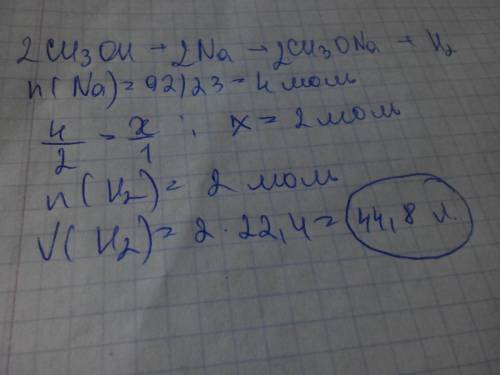 2CH3OH + 2Na → 2CH3ONa + H2
n(Na) = 92/23 = 4 моль
4/2 = x/1 ; x = 2 моль
n(H2) = 2 моль
V(H2) = 2 · 22,4 = 44,8 л.